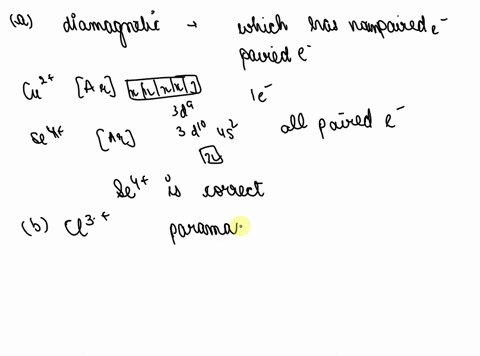 (a) diamagnetic → which has nonpaired e⁻
paired e⁻
Cu²⁺ [Ar] 1 e⁻
3d⁹
Se⁴⁺ [Ar] 3d¹⁰ 4s² all paired e⁻
Se⁴⁺ is correct
(b) Cl³⁺ parama